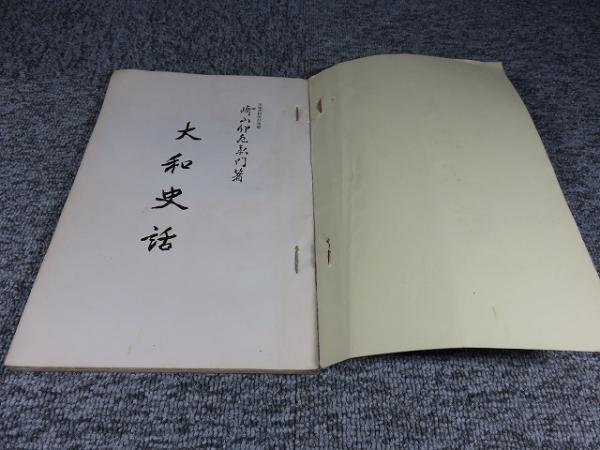 崎山卯左衛門著
大和史話